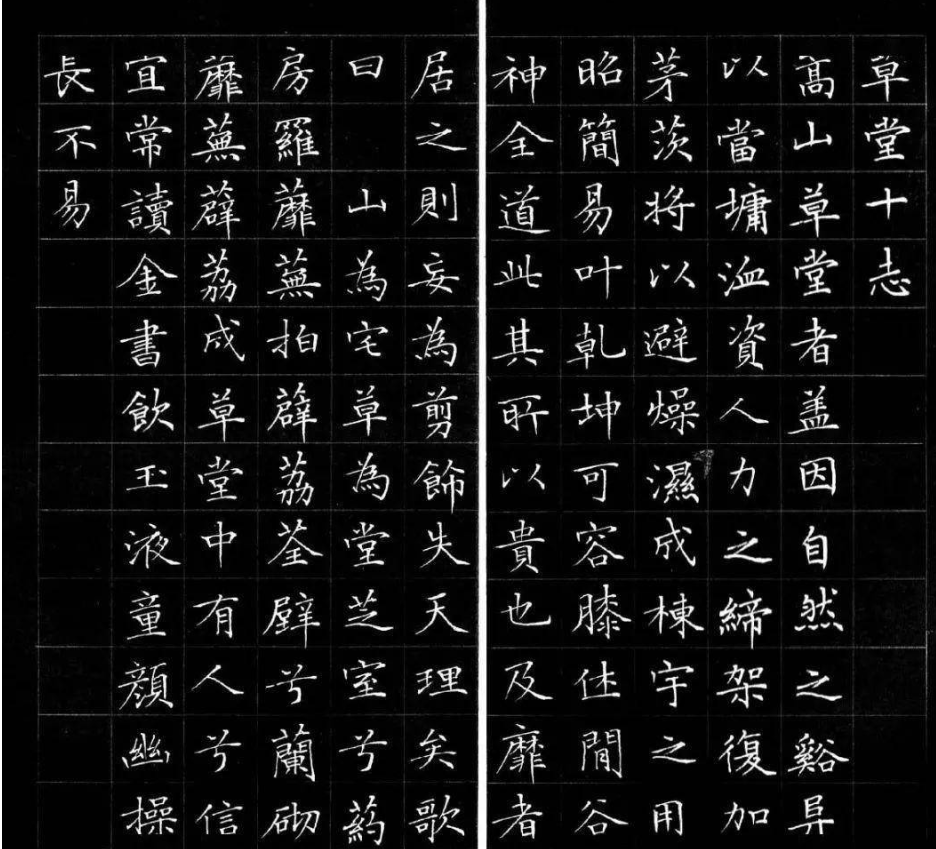 草堂十志
髙山草堂者盖因自然之谿阜
以當墉洫資人力之締架復加
茅茨将以避燥濕成棟宇之用
昭簡易叶乾坤可容膝休閒谷
神全道此其所以貴也及靡者
居之則妄為剪飾失天理矣歌
曰 山為宅草為堂芝室兮葯
房羅蘼蕪拍薜荔荃壁兮蘭砌
蘼蕪薜荔成草堂中有人兮信
宜常讀金書飲玉液童顏幽操
長不易